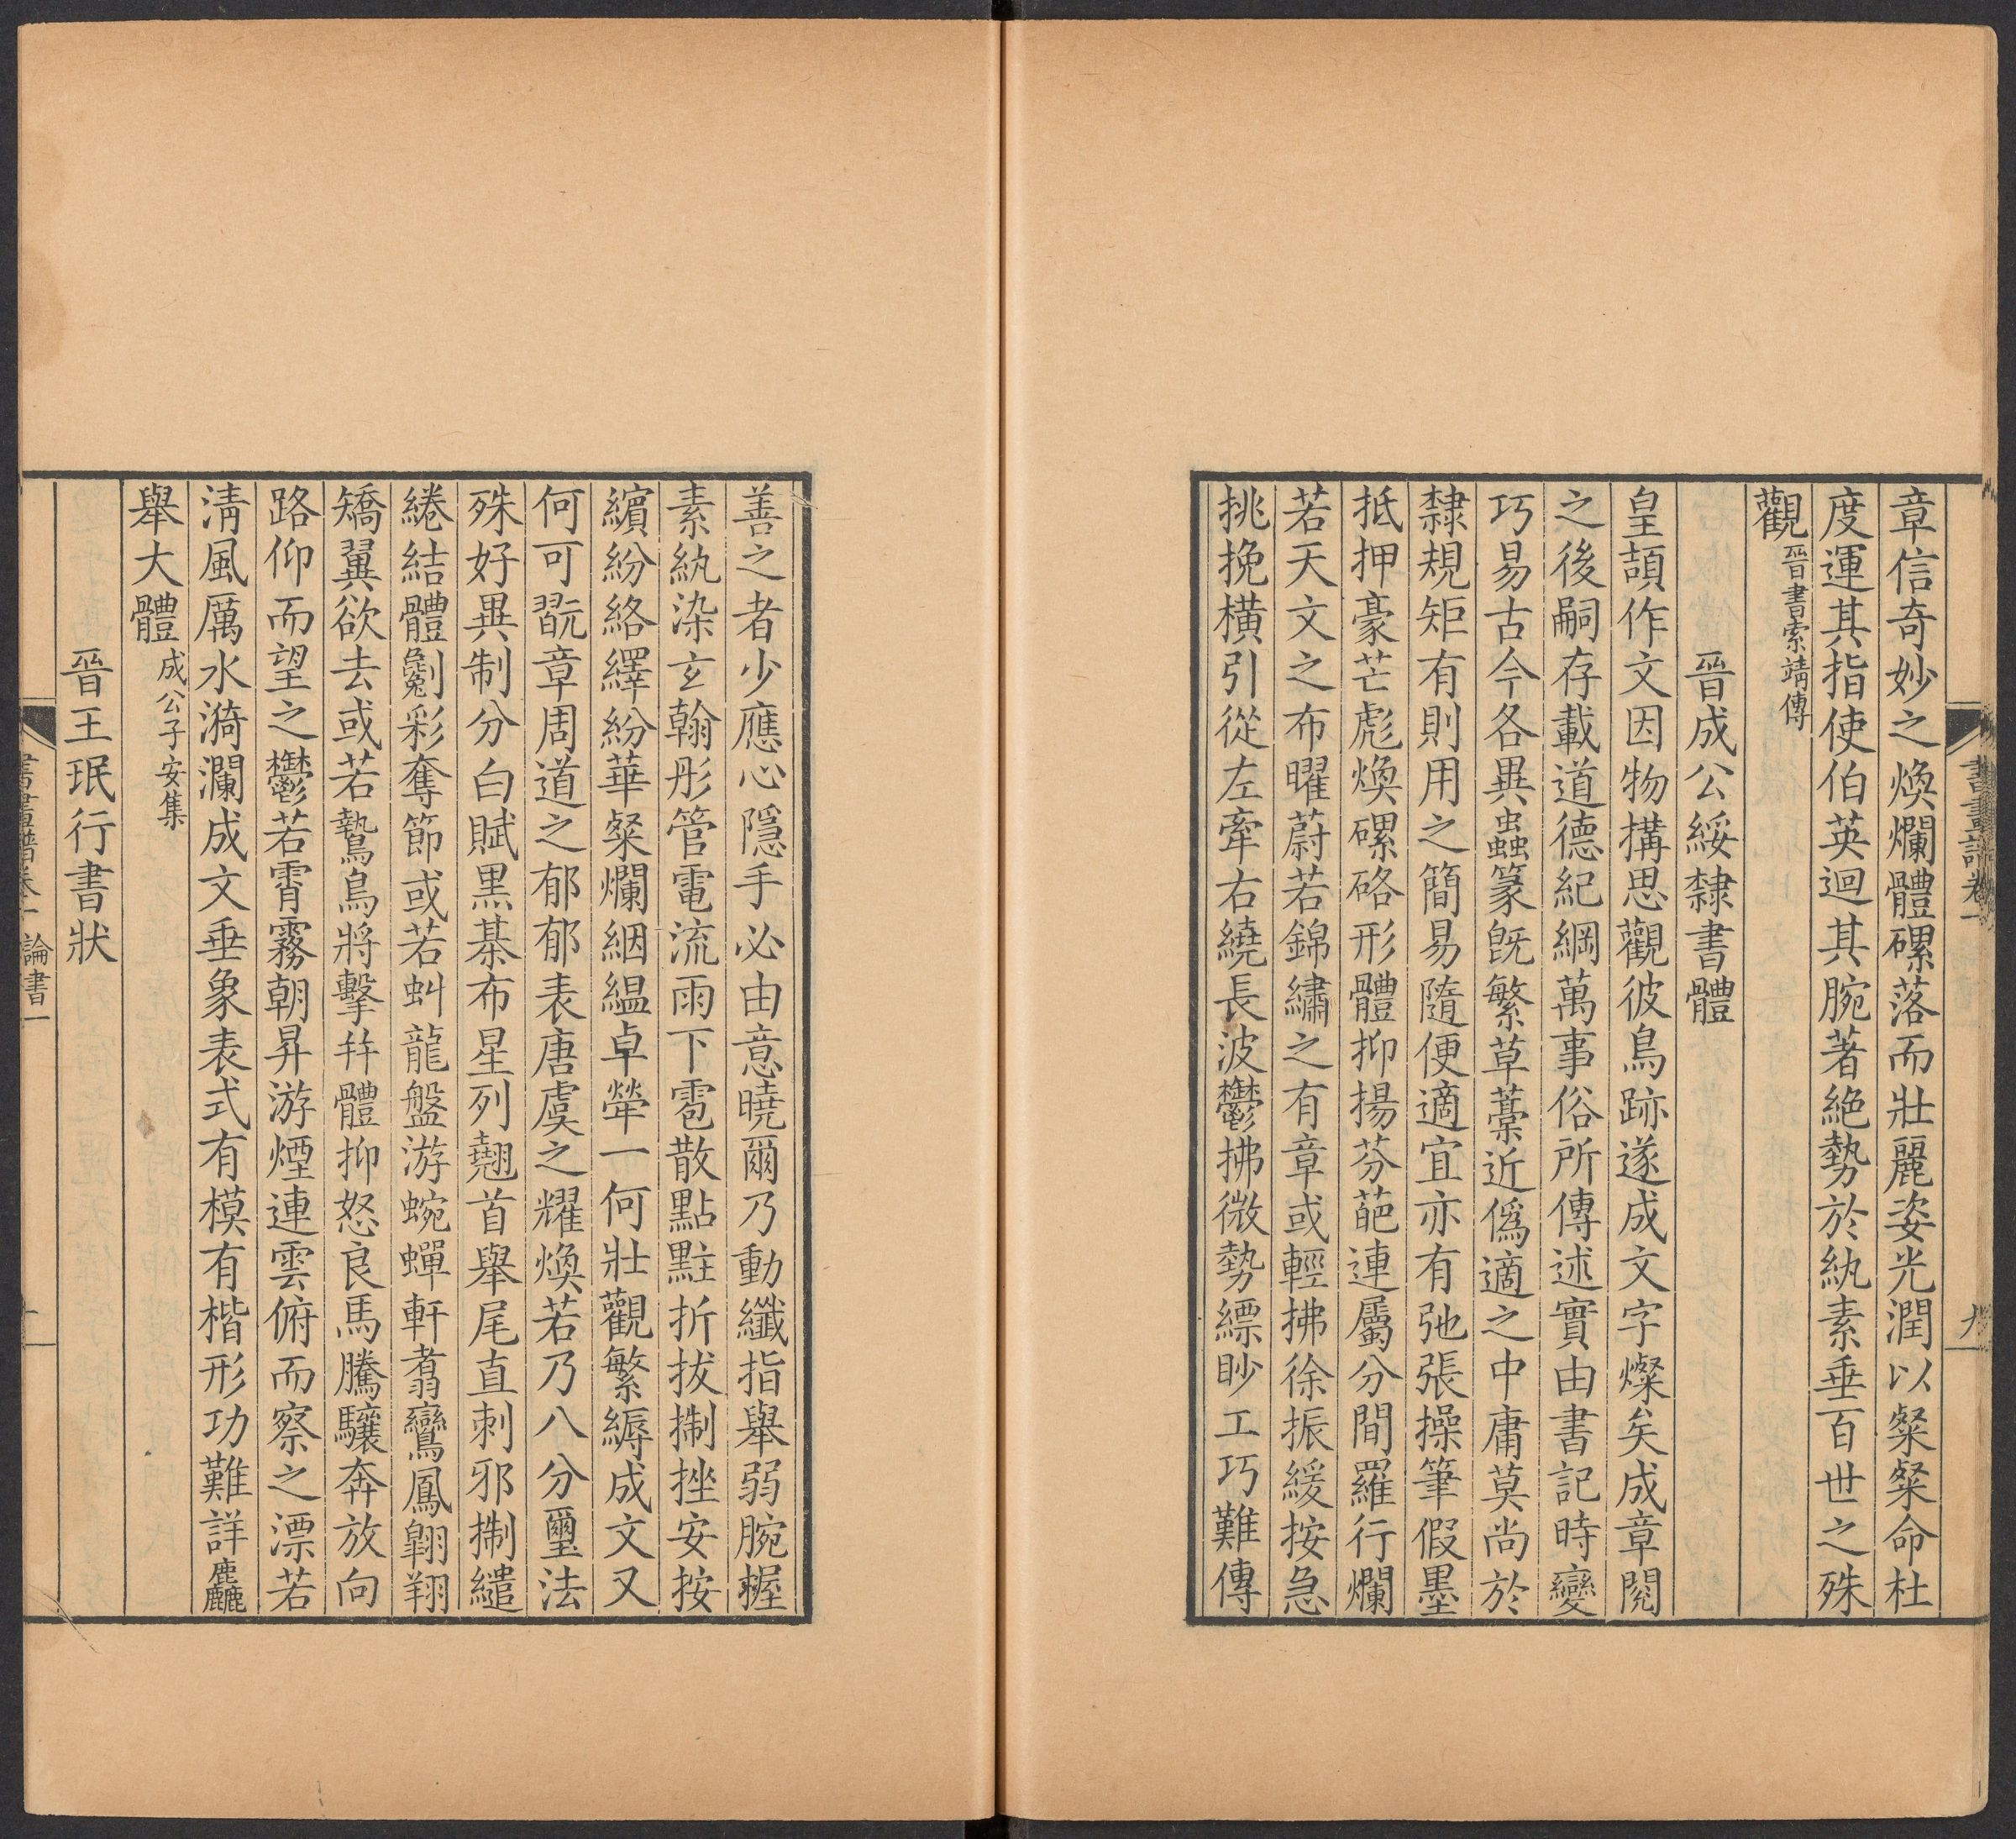 章信奇妙之煥爛體磥落而壯麗姿光潤以粲粲命杜
度運其指使伯英迴其腕著絕勢於紈素垂百世之殊
觀晉書索靖傳
晉成公綏隸書體
皇頡作文因物構思觀彼鳥跡遂成文字燦矣成章閱
之後嗣存載道德紀綱萬事俗所傳述實由書記時變
巧易古今各異蟲篆旣繁草藁近僞適之中庸莫尚於
隸規矩有則用之簡易隨便適宜亦有弛張操筆假墨
抵押豪芒彪煥磥硌形體抑揚芬葩連屬分間羅行爛
若天文之布曜蔚若錦繡之有章或輕拂徐振緩按急
挑挽橫引從左牽右繞長波鬱拂微勢縹眇工巧難傳
善之者少應心隱手必由意曉爾乃動纖指舉弱腕握
素紈染玄翰彤管電流雨下雹散點黈折拔掣挫安按
繽紛絡繹紛華粲爛絪縕卓犖一何壯觀繁縟成文又
何可翫章周道之郁郁表唐虞之耀煥若乃八分璽法
殊好異制分白賦黑棊布星列翹首舉尾直刺邪掣繾
綣結體劖彩奪節或若虯龍盤游蜿蟬軒翥鸞鳳翺翔
矯翼欲去或若鷙鳥將擊幷體抑怒良馬騰驤奔放向
路仰而望之鬱若霄霧朝昇游煙連雲俯而察之漂若
淸風厲水漪瀾成文垂象表式有模有楷形功難詳麤
舉大體成公子安集
晉王珉行書狀
書畫譜卷一 論書一